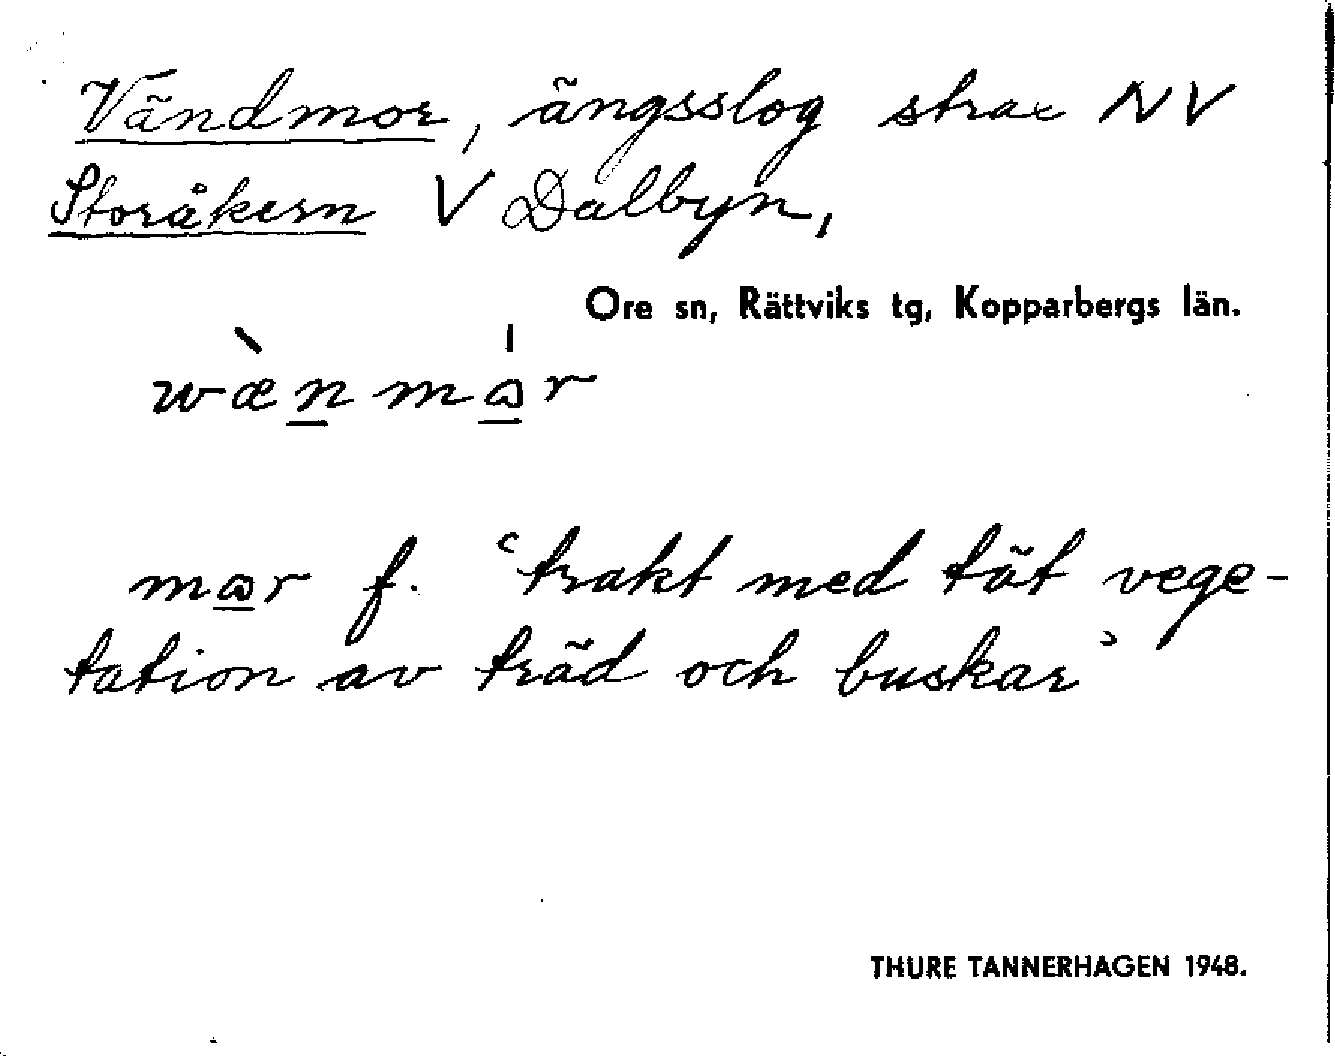 Vändmor, ängsslog strax NV
Storåkern V Dalbyn,
Ore sn, Rättviks tg, Kopparbergs län.
wæ̀nmɷ̍r
mɷr f. ‘trakt med tät vege-
tation av träd och buskar’
THURE TANNERHAGEN 1948.